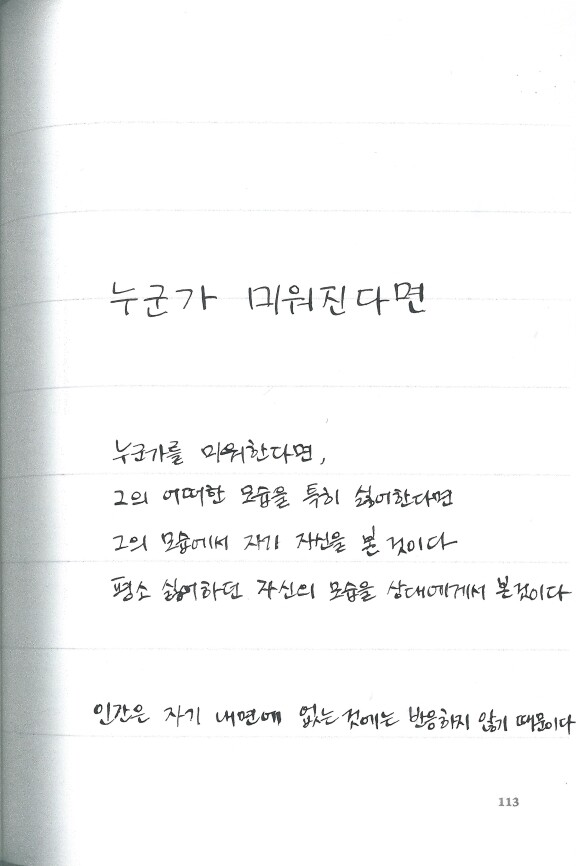 누군가 미워진다면
누군가를 미워한다면,
그의 어떠한 모습을 특히 싫어한다면
그의 모습에서 자기 자신을 본 것이다
평소 싫어하던 자신의 모습을 상대에게서 본것이다
인간은 자기 내면에 없는 것에는 반응하지 않기 때문이다
113